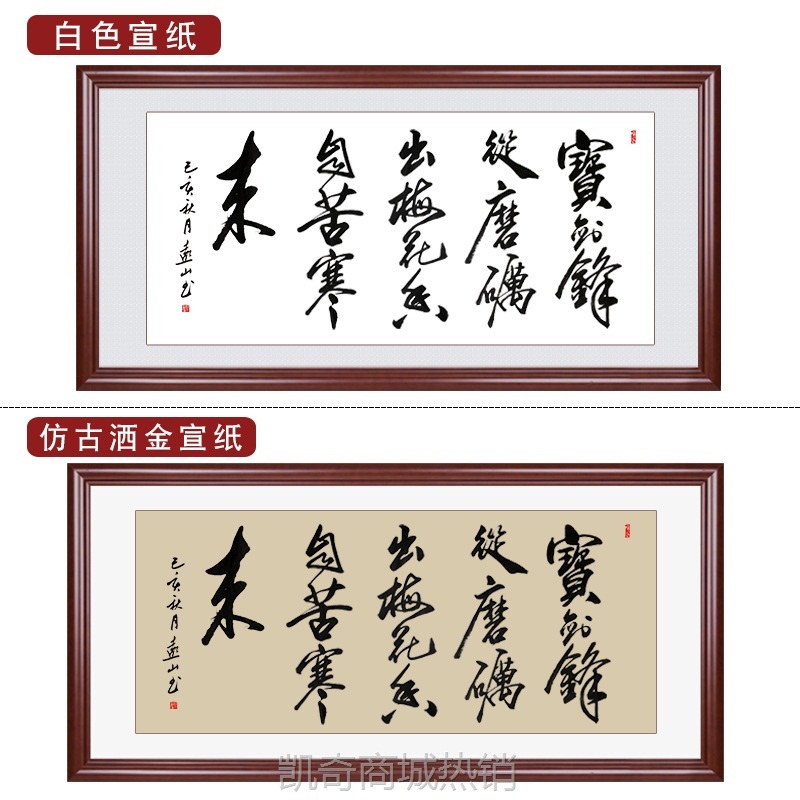 白色宣纸
寶劍鋒
從磨礪
出梅花香
自苦寒
来
己亥秋月遠山书
仿古洒金宣纸
寶劍鋒
從磨礪
出梅花香
自苦寒
来
己亥秋月遠山书
凯奇商城热销